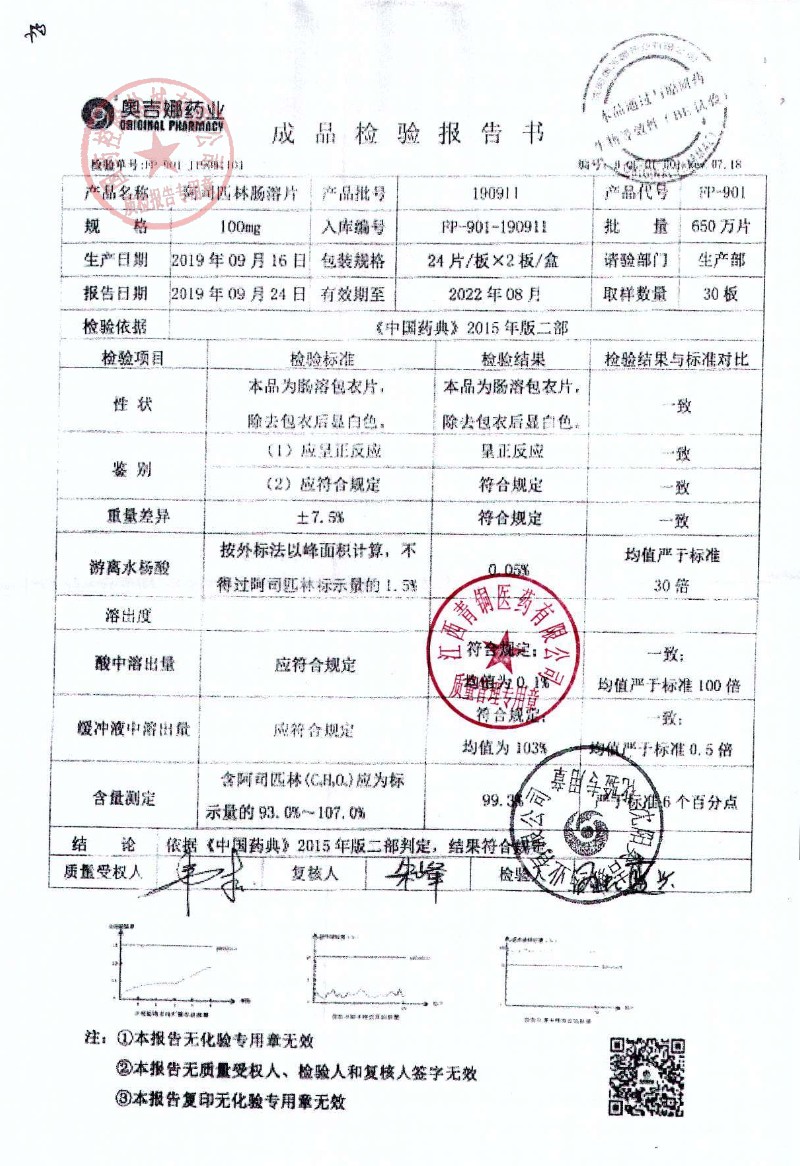 奥吉娜药业
ORIGINAL PHARMACY
本品通过与原研药
生物等效性(BE试验)
成品检验报告书
检验单号:FP-901
编号:
Rev.07.18
产品名称 阿司匹林肠溶片 产品批号 190911 产品代号 FP-901
规格 100mg 入库编号 FP-901-190911 批量 650万片
生产日期 2019年09月16日 包装规格 24片/板×2板/盒 请验部门 生产部
报告日期 2019年09月24日 有效期至 2022年08月 取样数量 30板
检验依据 《中国药典》2015年版二部
检验项目 检验标准 检验结果 检验结果与标准对比
性状 本品为肠溶包衣片, 本品为肠溶包衣片, 一致
除去包衣后显白色。 除去包衣后显白色。
鉴别 (1)应呈正反应 呈正反应 一致
(2)应符合规定 符合规定 一致
重量差异 ±7.5% 符合规定 一致
游离水杨酸 按外标法以峰面积计算,不 0.05% 均值严于标准
得过阿司匹林标示量的1.5% 30倍
溶出度
酸中溶出量 应符合规定 符合规定; 一致;
均值为0.1% 均值严于标准100倍
缓冲液中溶出量 应符合规定 符合规定; 一致;
均值为103% 均值严于标准0.5倍
含量测定 含阿司匹林(C₉H₈O₄)应为标 99.3% 严于标准6个百分点
示量的93.0%~107.0%
结论 依据《中国药典》2015年版二部判定,结果符合规定
质量受权人 复核人 检验
江西青铜医药有限公司
质量管理专用章
化验专用章
注:①本报告无化验专用章无效
②本报告无质量受权人、检验人和复核人签字无效
③本报告复印无化验专用章无效